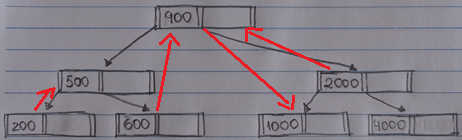 900
500 2000
200 600 1000 4000